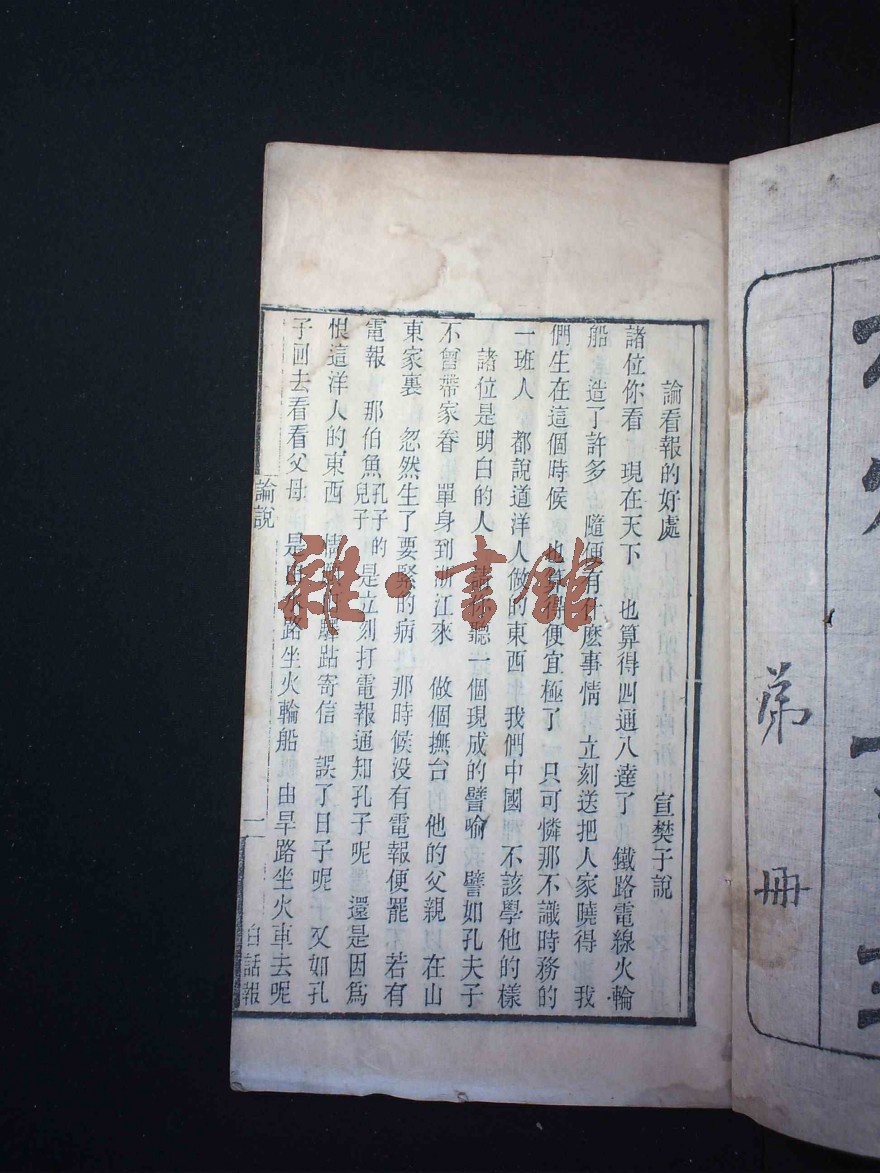 論看報的好處 宣樊子說
諸位你看 現在天下 也算得四通八達了 鐵路電線火輪
船 造了許多 隨便有什麼事情 立刻送把人家曉得 我
們生在這個時候 也算得便宜極了 只可憐那不識時務的
一班人 都說道洋人做的東西 我們中國 不該學他的樣
諸位是明白的人 請你聽一個現成的譬喻 譬如孔夫子
不曾帶家眷 單身到浙江來 做個撫台 他的父親 在山
東家裏 忽然生了要緊的病 那時候没有電報便罷 若有
電報 那伯魚孔子的兒子 是立刻打電報通知孔子呢 還是因爲
恨這洋人的東西 情願 驛站寄信 誤了日子呢 又如孔
子回去看看父母 是由水路坐火輪船 由旱路坐火車去呢
論說 一 白話報
雜·書館
第
冊